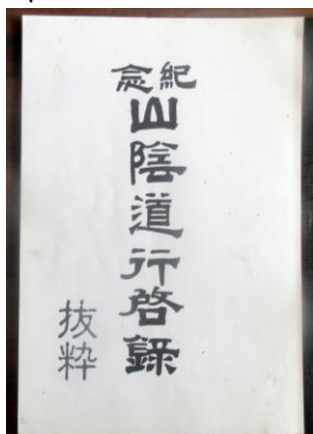 紀念
山陰道行啓録
抜粋